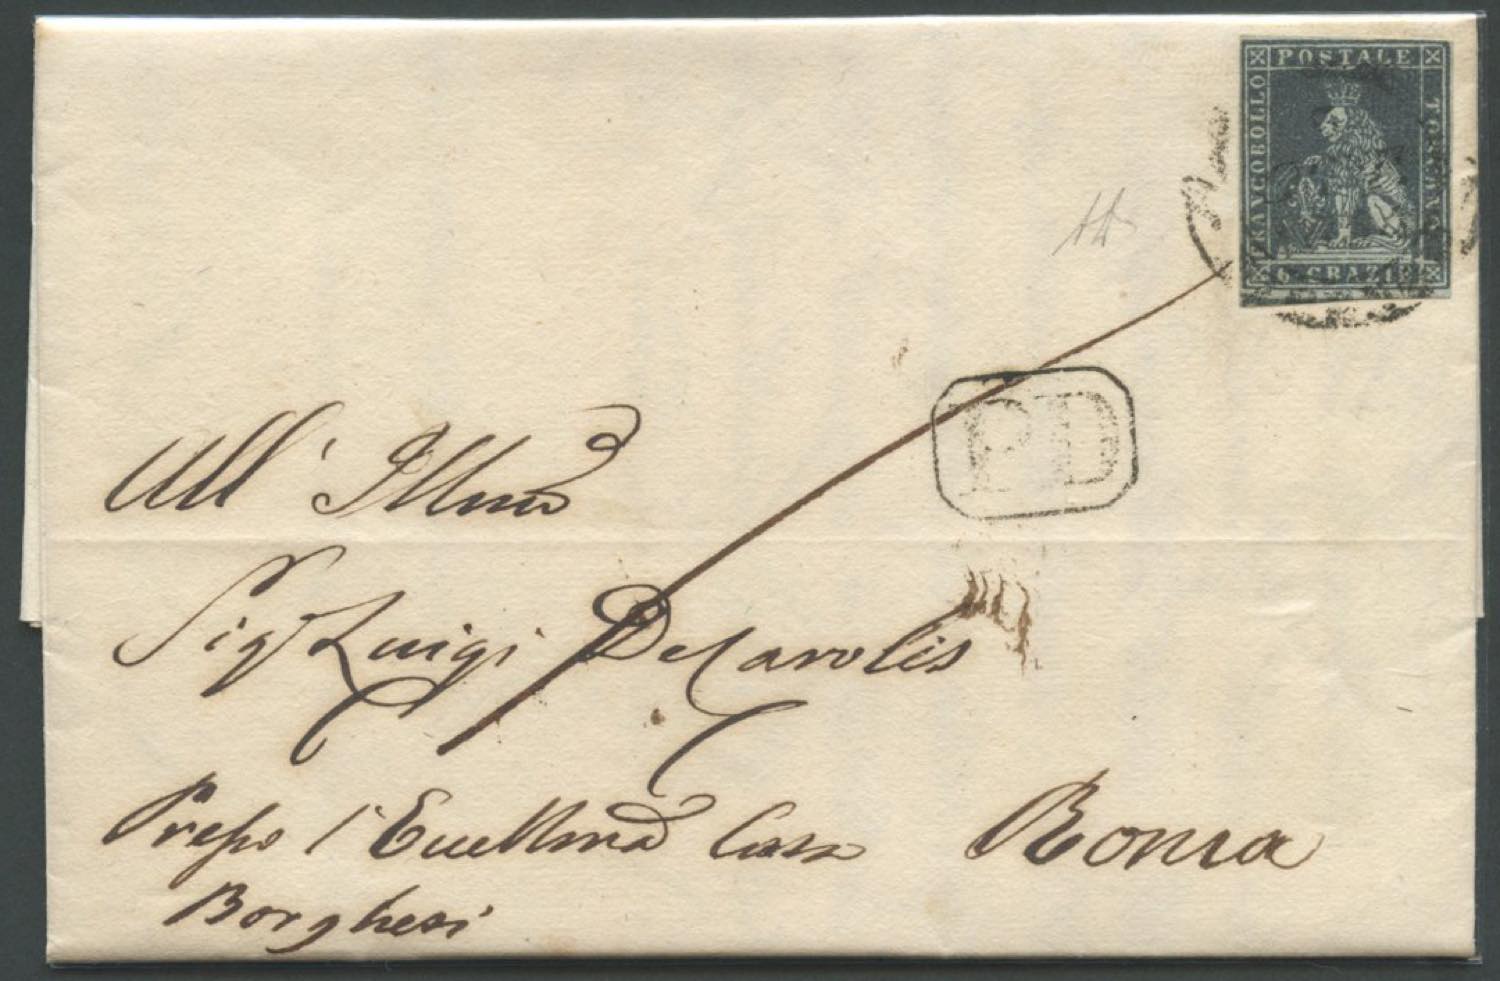 POSTALE
FRANCOBOLLO
TOSCANO
6 CRAZIE
PD
All' Illmo
Sigr Luigi De Carolis
Presso l'Eccellma Casa Roma
Borghesi